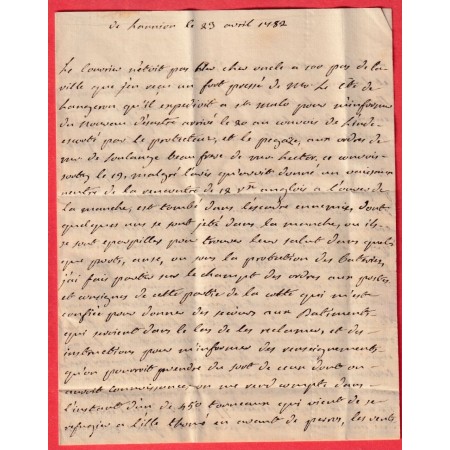 de Lannion le 23 avril 1782
Le Courier n'étoit pas cher oncle a 100 pas de la
ville que j'en reçu un fort pressé de Mr Le Cte de
Langeron qu'il expedioit a st malo pour m'informer
du nouveau desastre arrivé le 20 au convoi de L'inde
escorté par le protecteur, et le pegaze, aux ordres de
mr de Soulange beau frere de mr hector, ce convoi
sorty le 19, malgré lavis qu'avoit donné un vaisseau
neutre de la rencontre de 12 vx anglois a l'ouvert de
la manche, est tombé dans l'escadre ennemie, dont
quelques uns se sont jetté dans la manche, ou ils
se sont eparpillés pour trouver leur salut dans quel
que ports, anse, ou sous la protection des batteries,
j'ai fais partir sur le champt des ordres aux postes
et consignes de cette partie de la côte qui m'est
confiée pour donner des secours aux Batiments
qui seroient dans le cas de les reclamer, et des
instructions pour m'informer des renseignements
qu'on pourroit prendre du sort de ceux dont on
auroit connoissance, on me rend compte dans
l'instant d'un de 450 tonneaux qui vient de se
refugier a l'ille en avant de peros, les vents